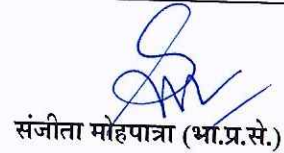 संजीता मोहपात्रा (भा.प्र.से.)